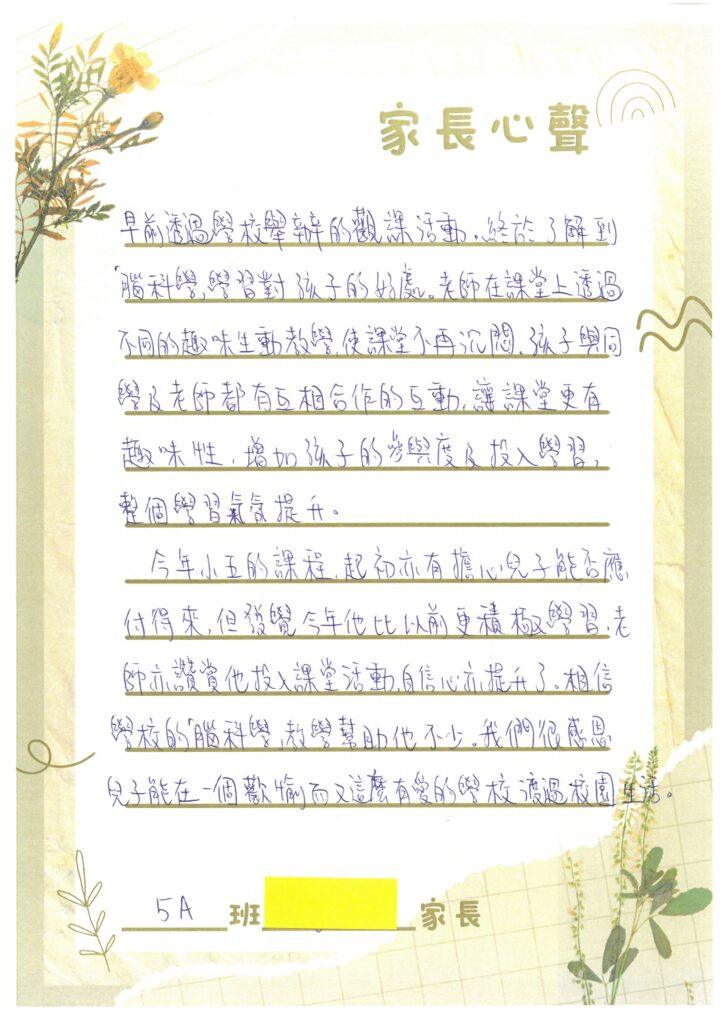 家長心聲
早前透過學校舉辦的觀課活動,終於了解到
「腦科學」學習對孩子的好處。老師在課堂上透過
不同的趣味生動教學,使課堂不再沉悶,孩子與同
學及老師都有互相合作的互動,讓課堂更有
趣味性,增加孩子的參與度及投入學習,
整個學習氣氛提升。
今年小五的課程,起初亦有擔心兒子能否應
付得來,但發覺今年他比以前更積極學習,老
師亦讚賞他投入課堂活動,自信心亦提升了。相信
學校的「腦科學」教學幫助他不少。我們很感恩
兒子能在一個歡愉而又這麼有愛的學校渡過校園生活。
5A 班 家長